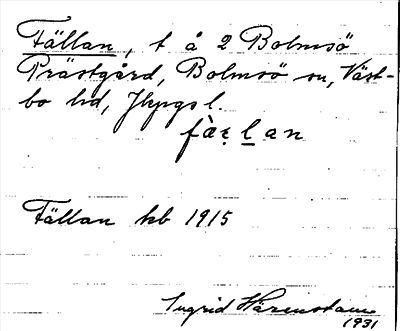 Fällan, t å 2 Bolmsö
Prästgård, Bolmsö sn, Väst-
bo hd, Jkpgs l.
fàε̨l̲an
Fällan kb 1915
Ingrid Härenstam
1931